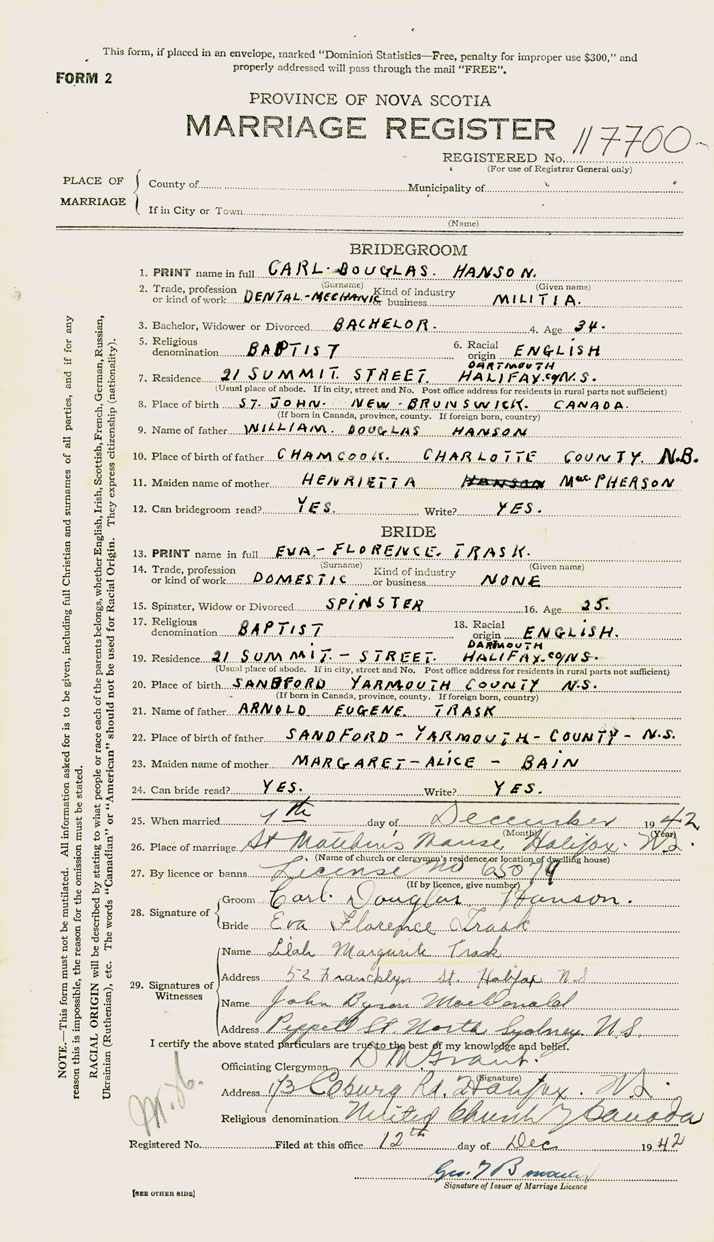 This form, if placed in an envelope, marked "Dominion Statistics—Free, penalty for improper use $300," and
properly addressed will pass through the mail "FREE".
FORM 2
PROVINCE OF NOVA SCOTIA
MARRIAGE REGISTER
117700
REGISTERED No.
(For use of Registrar General only)
PLACE OF MARRIAGE
County of Municipality of
If in City or Town
(Name)
BRIDEGROOM
1. PRINT name in full CARL DOUGLAS. HANSON.
(Surname) (Given name)
2. Trade, profession or kind of work DENTAL-MECHANIC Kind of industry or business MILITIA.
3. Bachelor, Widower or Divorced BACHELOR. 4. Age 34.
5. Religious denomination BAPTIST 6. Racial origin ENGLISH
DARTMOUTH
7. Residence 21 SUMMIT. STREET. HALIFAX. CO N.S.
(Usual place of abode. If in city, street and No. Post office address for residents in rural parts not sufficient)
8. Place of birth ST. JOHN. NEW-BRUNSWICK. CANADA.
(If born in Canada, province, county. If foreign born, country)
9. Name of father WILLIAM. DOUGLAS HANSON
10. Place of birth of father CHAMCOOK. CHARLOTTE COUNTY. N.B.
11. Maiden name of mother HENRIETTA HANSON MacPHERSON
12. Can bridegroom read? YES. Write? YES.
BRIDE
13. PRINT name in full EVA-FLORENCE. TRASK.
(Surname) (Given name)
14. Trade, profession or kind of work DOMESTIC Kind of industry or business NONE
15. Spinster, Widow or Divorced SPINSTER 16. Age 25.
17. Religious denomination BAPTIST 18. Racial origin ENGLISH.
DARTMOUTH
19. Residence 21 SUMMIT-STREET. HALIFAX. CO N.S.
(Usual place of abode. If in city, street and No. Post office address for residents in rural parts not sufficient)
20. Place of birth SANDFORD YARMOUTH COUNTY N.S.
(If born in Canada, province, county. If foreign born, country)
21. Name of father ARNOLD EUGENE TRASK
22. Place of birth of father SANDFORD-YARMOUTH-COUNTY-N.S.
23. Maiden name of mother MARGARET-ALICE-BAIN
24. Can bride read? YES. Write? YES.
25. When married 7th day of December 1942
(Month) (Year)
26. Place of marriage St Matthew's Manse, Halifax. N.S.
(Name of church or clergyman's residence or location of dwelling house)
27. By licence or banns License No 65079
(If by licence, give number)
28. Signature of
Groom Carl. Douglas Hanson.
Bride Eva Florence Trask
29. Signatures of Witnesses
Name Lilah Marguerite Trask
Address 52 Francklyn St. Halifax N.S
Name John Byron MacDonald
Address Peppett St. North Sydney N.S
I certify the above stated particulars are true to the best of my knowledge and belief.
Officiating Clergyman D M Grant.
(Signature)
Address 173 Coburg Rd. Halifax. N.S.
Religious denomination United Church of Canada
Registered No. Filed at this office 12th day of Dec 1942
Signature of Issuer of Marriage Licence
[SEE OTHER SIDE]
NOTE.—This form must not be mutilated. All information asked for is to be given, including full Christian and surnames of all parties, and if for any
reason this is impossible, the reason for the omission must be stated.
RACIAL ORIGIN will be described by stating to what people or race each of the parents belongs, whether English, Irish, Scottish, French, German, Russian,
Ukrainian (Ruthenian), etc. The words "Canadian" or "American" should not be used for Racial Origin. They express citizenship (nationality).